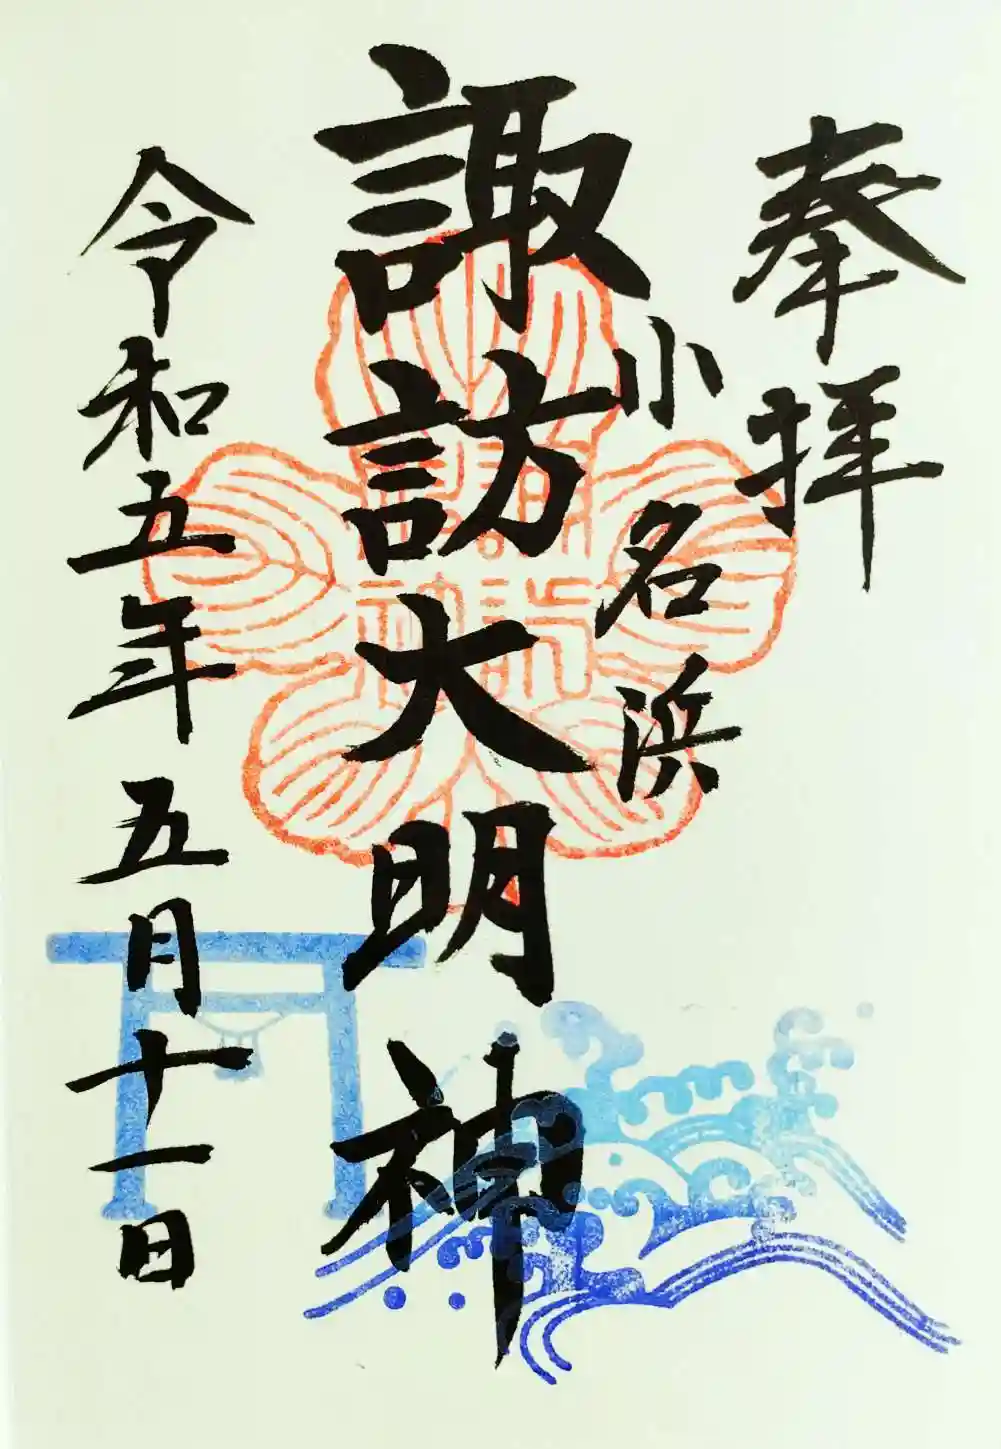 奉拝
小名浜
諏訪大明神
令和五年五月十一日